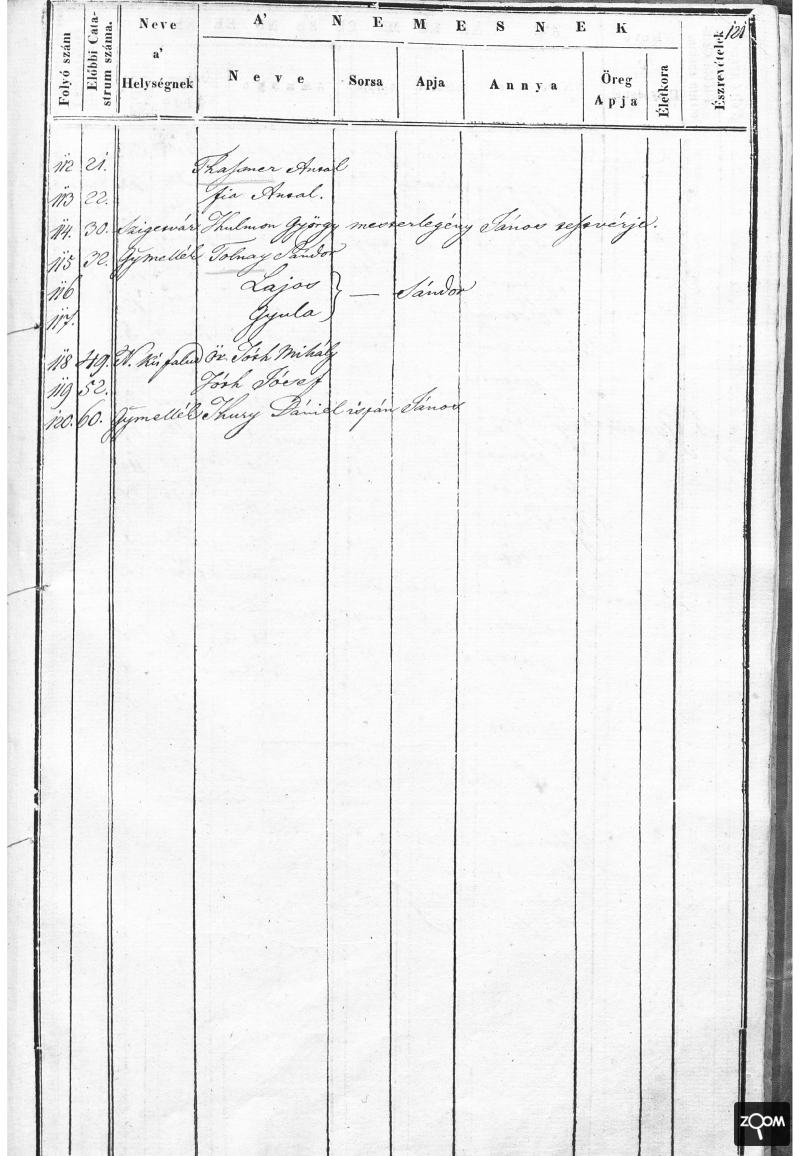 121
Folyó szám
Előbbi Cata-
strum száma.
Neve
a'
Helységnek
A' NEMESNEK
Neve
Sorsa
Apja
Annya
Öreg
Apja
Életkora
Észrevételek
112 21. Antal
113 22. fia Antal.
114. 30. Szigetvár Thulmon György mesterlegény János testvérje.
115 32. Gymellék Tolnay Sándor
116 Lajos } — Sándor
117. Gyula
118 49. N. Kisfalud Öz. Tóth Mihály
119 52. Tóth József
120. 60. Gymellék Thury Dániel ispán János
ZOOM